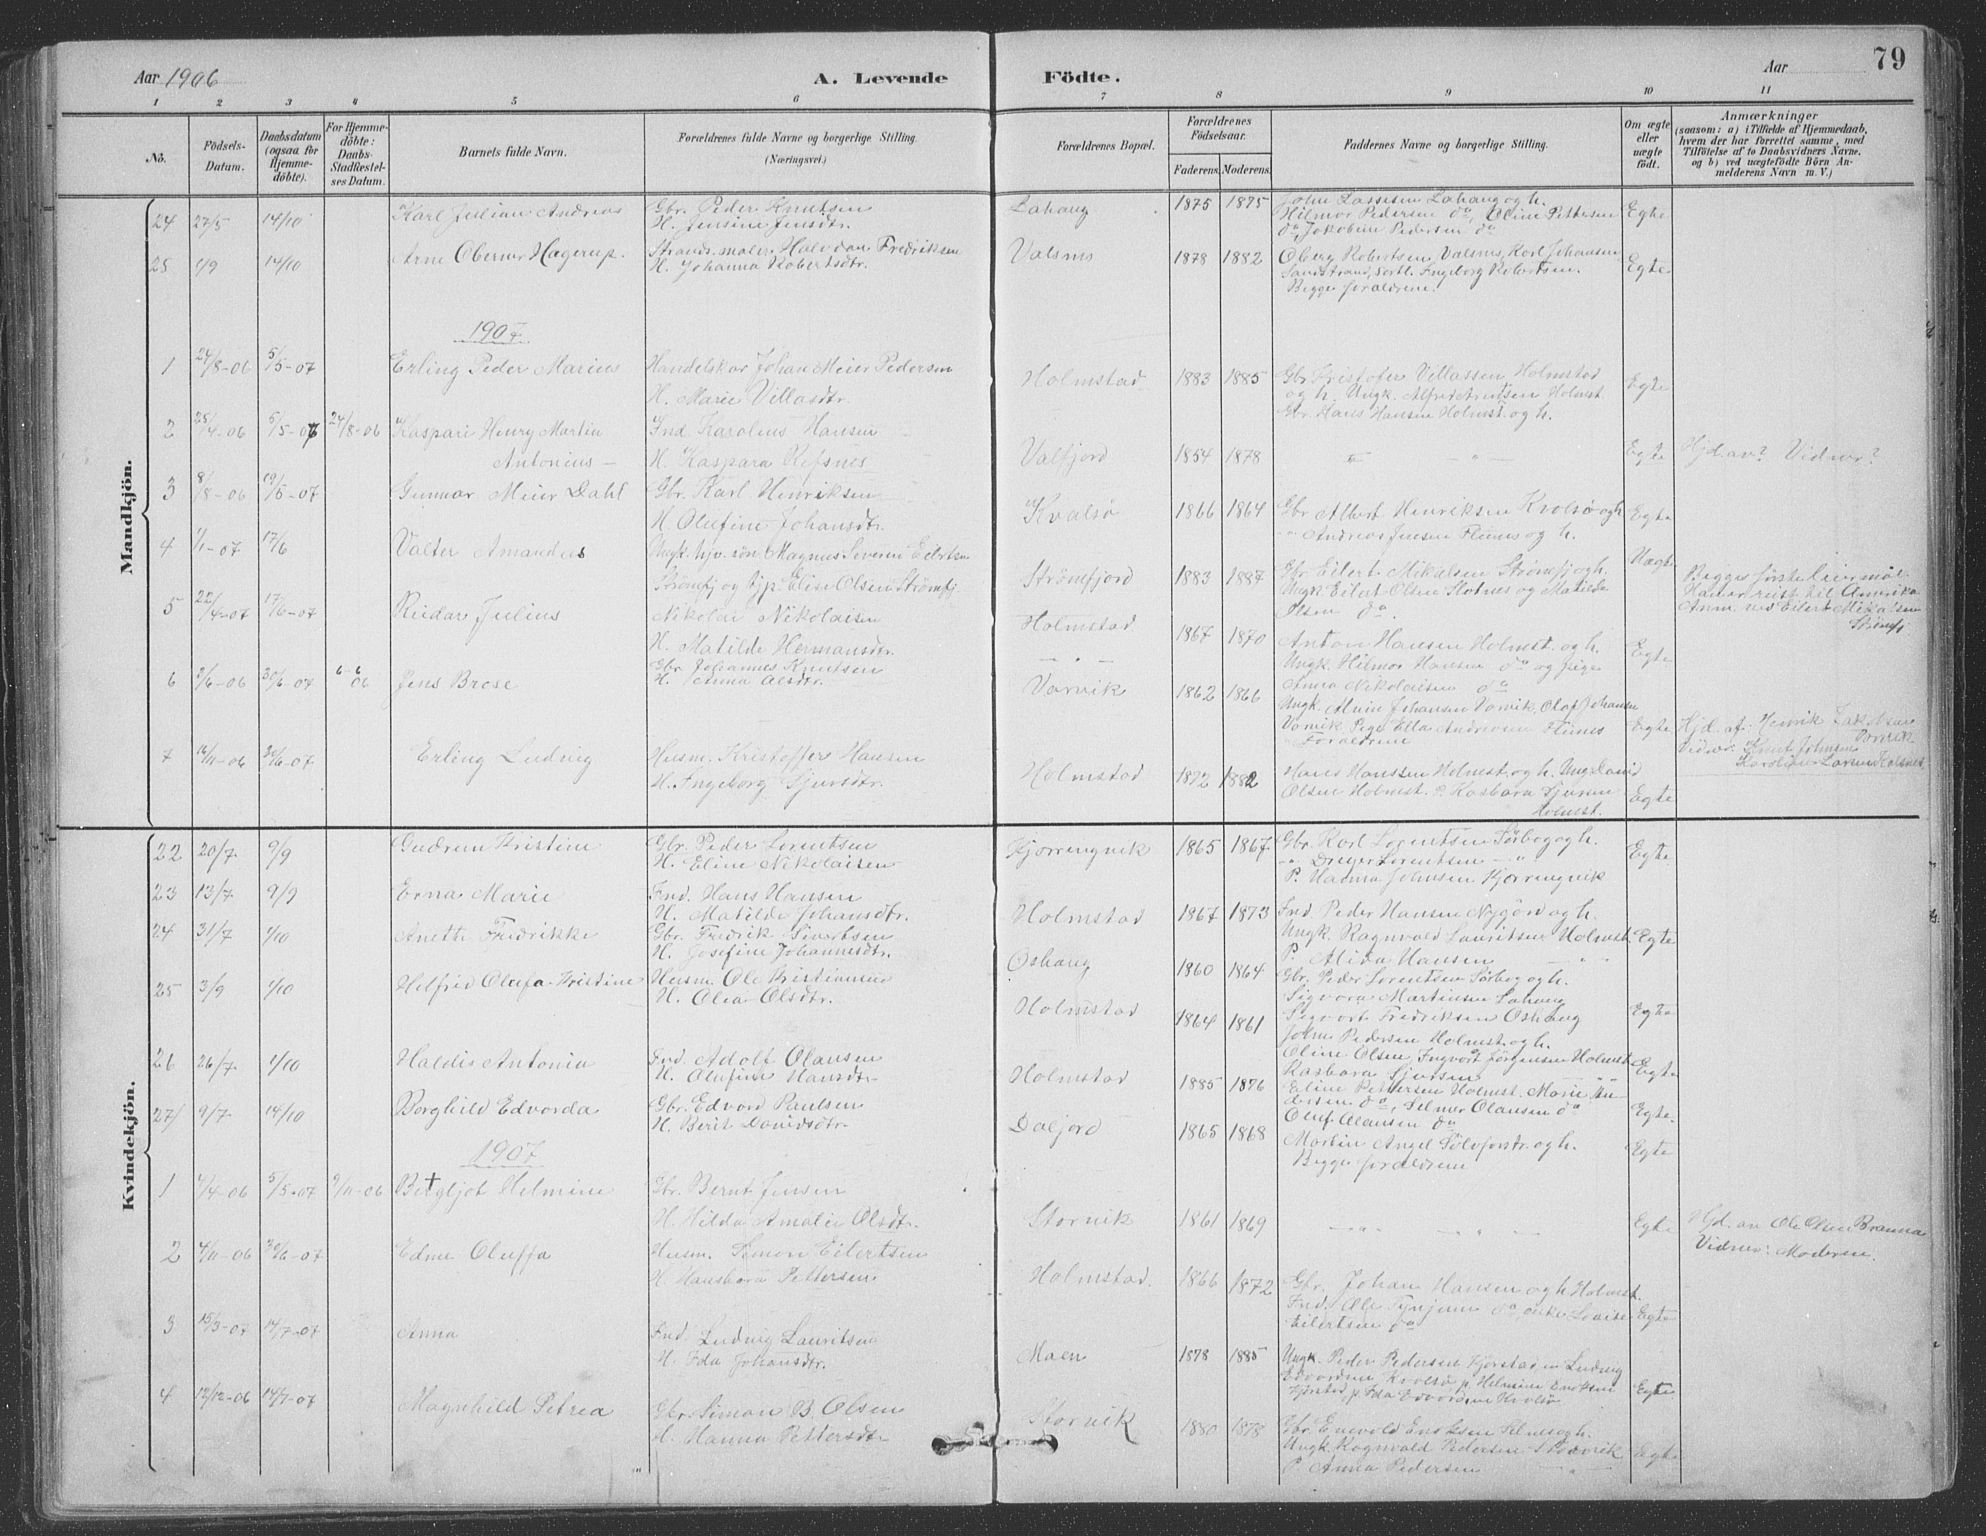 Aar 1906 A. Levende Födte. Aar 79
1 2 3 4 5 6 7 8 9 10 11
No.
Födsels-Datum.
Daabsdatum (ogsaa for Hjemme-döbte).
For Hjemme-döbte: Daabs-Stadfestel-ses Datum.
Barnets fulde Navn.
Forældrenes fulde Navne og borgerlige Stilling. (Næringsvei.)
Forældrenes Bopæl.
Forældrenes Födselsaar.
Faderens. Moderens.
Faddernes Navne og borgerlige Stilling.
Om ægte eller uægte födt.
Anmærkninger
(saasom: a) i Tilfælde af Hjemmedaab, hvem der har forrettet samme, med Tilföielse af to Daabsvidners Navne. og b) ved uægtefödte Börn Anmelderens Navn m. V.)
Mandkjön.
24 27/5 14/10 Karl Julian Andreas Gbr. Peder Knutsen Lahaug 1875 1875 John Lassesen Lahaug og h. Egte
H. Jensine Jensdtr. Hilmor Pedersen do, Oline Pettersen
do Jakobine Pedersen do
25 1/9 14/10 Arne Oberner Hagerup. Strands. maler Halvdan Fredriksen Valsnes 1878 1882 Oberg Robertsen Valsnes, Karl Johansen Egte
H. Johanna Robertsdtr. Sandstrand, Sortl. Ingeborg Robertsen.
Begge forældrene.
1907
1 24/8-06 5/5-07 Erling Peder Marius Handelskar Johan Meier Pedersen Holmstad 1883 1885 Gbr Kristofer Villassen Holmstad Egte
H. Marie Villasdtr. og h. Ungk. Alfred Arntsen Holmst
Gbr. Hans Hansen Holmst. og h.
2 25/4-06 5/5-07 24/8-06 Kaspare Henry Martin Ind Karolius Hansen Valfjord 1854 1878 " " Egte Hjd. av? Vidner?
Antonius - H. Kaspara Refsnes
3 8/8-06 19/5-07 Gunnar Meier Dahl Gbr. Karl Henriksen Kvalsø 1866 1864 Gbr Albert Henriksen Kvolsø og h Egte
H. Olufine Johansdtr. " Andreas Jensen Flunes og h.
4 1/1-07 17/6 Valter Amandus Ungk. hjv. søn Magnus Severin Eilertsen Strømfjord 1883 1887 Gbr Eilert Mikalsen Strømfj og h. Uægte Begges første leiermål
Strømfj og pjp. Elise Olsen Strømfj Ungk Eilert Olsen Slotnes og Matilde Olsen do. Manden reist til Amerika
Anm. ved Eilert Mikalsen Strømfj.
5 22/4-07 17/6-07 Reidar Julius Nikolai Nikolaisen Holmstad 1867 1870 Anton Hansen Holmst. og h. Egte
H. Matilde Hermansdtr. - " - Ungk Hilmor Hansen do og pige
Anna Nikolaisen do
6 3/6-06 30/6-07 6-6 06 Jens Brose Gbr. Johannes Knutsen Vorvik 1862 1866 Ungk. Alvin Johansen Vorvik, Olaf Johansen Egte Hjd. af. Henrik Jakobsen Vorvik
H. Emma Olsdtr. Vorvik Pige Ella Andreasen Flunes Vidner: Knut Johnsen
Foraldrene Karoline Larsen
7 16/11-06 30/6-07 Erling Ludvig Husm. Kristoffer Hansen Holmstad 1872 1882 Hans Hanssen Holmst. og h. Ungk David Egte
H. Ingeborg Sjursdtr. Olsen Holmst. P. Kasbara Sjursen
Holmst.
Kvindekjön.
22 20/7 9/9 Gudrun Kristine Gbr. Peder Lorentsen Kjörringvik 1865 1867 Gbr. Karl Lorentsen Sørbog og h. Egte
H. Eline Nikolaisen " Dreyer Lorentsen - "
P. Hanna Johnsen Kjörringvik
23 13/7 9/9 Erna Marie Ind. Hans Hansen Holmstad 1867 1873 Ind. Peder Hansen Nygård og h. Egte
H. Matilde Johansdtr. Ungk. Ragnvald Lauritsen Holmst.
P. Alida Hansen " "
24 31/7 1/10 Anette Fredrikke Gbr. Fredrik Sivertsen Oshaug 1860 1864 Gbr. Peder Lorentsen Sørbog og h.
H. Josefine Johannesdtr. Sigvora Martinsen Lahaug
Sigvort Fredriksen Oshaug
25 3/9 1/10 Helfrid Olufa Kristine Husm. Ole Kristiansen Holmstad 1864 1861 Johne Pedersen Holmst. og h. Egte
H. Olea Olsdtr. Oline Olsen, Ingvort Jörgensen Holmst.
Kasbara Sjursen
26 26/7 1/10 Haldis Antonia Ind. Adolf Olausen Holmstad 1885 1876 Eline Pettersen Holmst. Marie An- Egte
H. Olufine Hansdtr dersen do, Selmer Olausen do
Oluf Olausen do
27 9/7 14/10 Borghild Edvorda Gbr. Edvord Paulsen Daljord 1865 1868 Martin Angel Sölvforstr. og h. Egte
H. Berit Davidsdtr. Begge forældrene
1907
1 4/4-06 5/5-07 9/11-06 Bergljot Helmine Gbr. Bernt Jensen Storvik 1861 1869 " " Egte Hjd. av Ole Olsen Branna
H. Hilda Amalie Olsdtr. Vidner: Moderen.
2 4/11-06 30/6-07 Edme Oluffa Husm. Simon Eilertsen Holmstad. 1866 1872 Gbr. Johan Hansen og h. Holmst. Egte
H. Hansbora Pettersen Ind. Ole Tynjum do, enke Lovise
Eilertsen do
3 15/3-07 14/7-07 Anna Ind. Ludvig Lauritsen Maen 1878 1885 Ungk. Peder Pedersen Kjörstad, Ludvig
H. Ida Johansdtr. Edvordsen Kvolsø p. Helmine Eriksen
Kjörstad p. Ida Edvordsen Kvolsø
4 12/12-06 14/7-07 Magnhild Petrea Gbr Simon B. Olsen Storvik 1880 1878 Gbr. Enevold Enoksen Selnes og h. Egte
H. Hanna Pettersdtr Ungk. Ragnvald Pedersen Storvik Egte
P. Anna Pedersen "